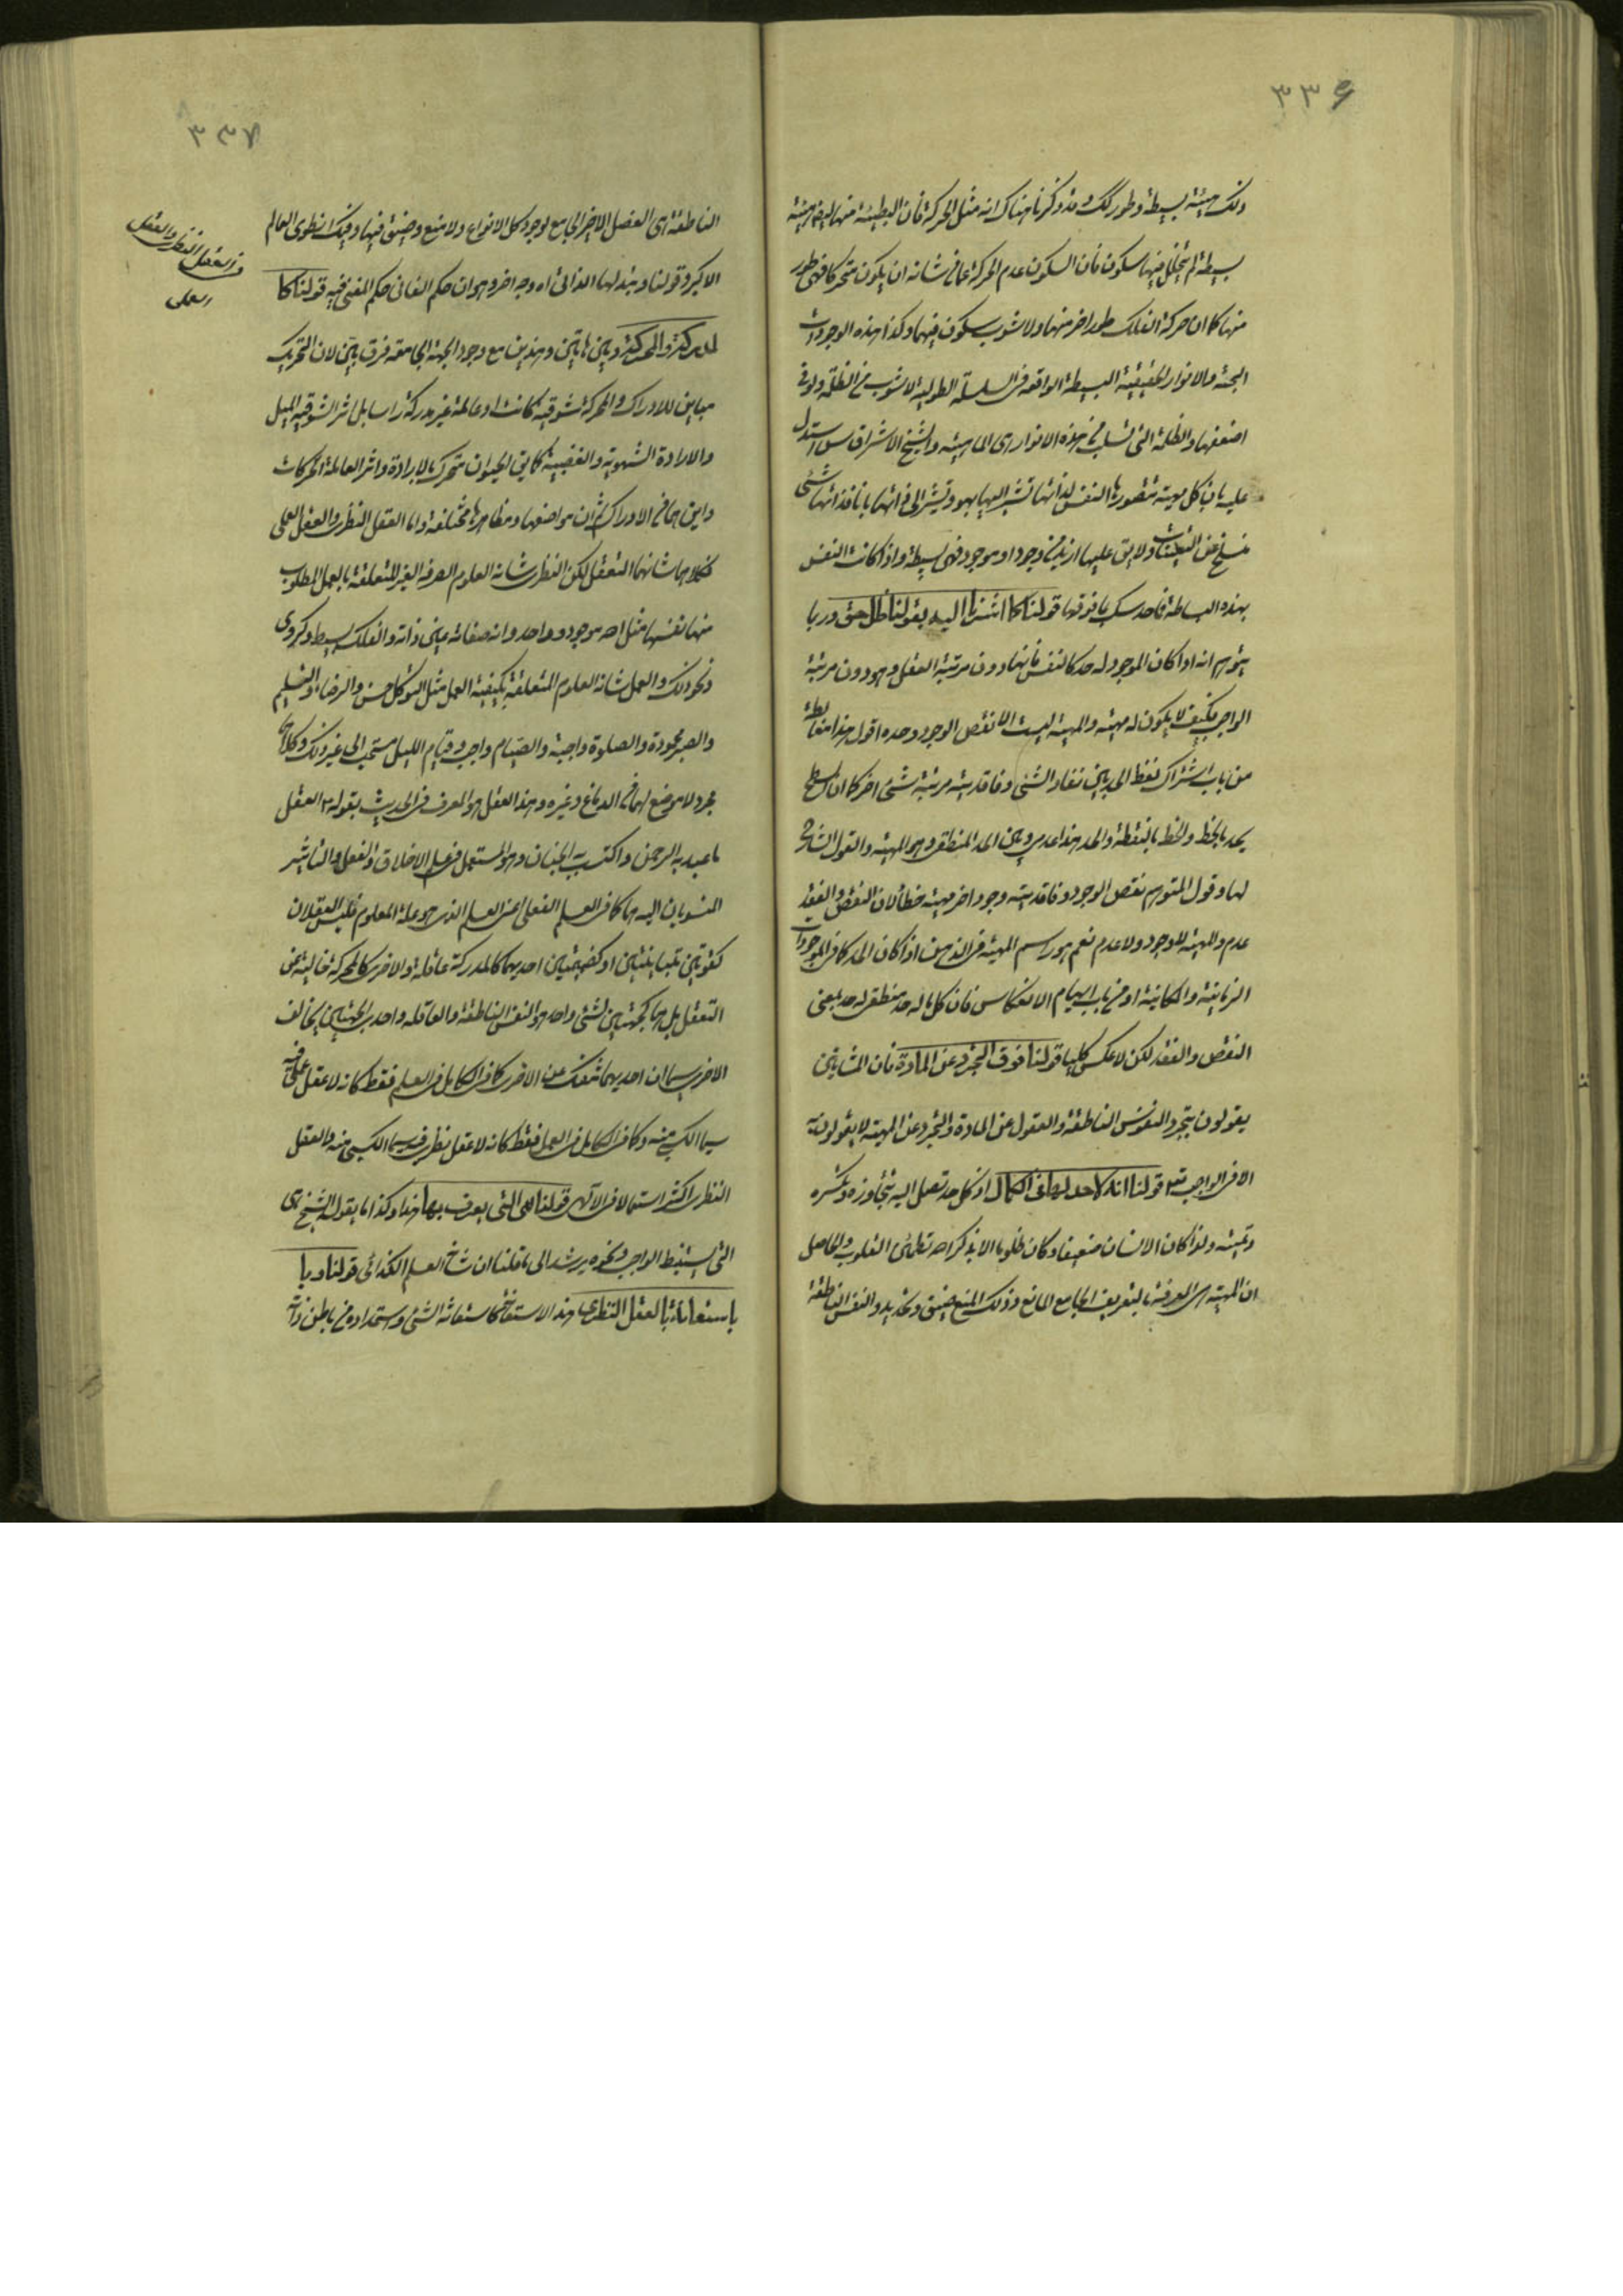 ٣٣۶
ذلك هيئة بسيطة وطور كك وقد ذكرنا هناك انه مثل الحركة فان البطيئة منها ايض هيئة
بسيطة لم يتخلل فيها سكون فان السكون عدم الحركة عما من شانه ان يكون متحركا فهى طور
منها كما ان حركة الفلك طور اخر منها ولا شوب سكون فيهما وكذا هذه الوجودات
البحتة والانوار الحقيقية البسيطة الواقعه فى السلسلة الطولية لا شوب من الظلمة ولو فى
اضعفها والظلمة التى تسلب من هذه الانوار هى الماهية والشيخ الاشراقى س استدل
عليه بان كل هوية تتصورها النفس لذاتها تشير اليها بهو وتشير الى ذاتها بانا فذاتها شئ
منسلخ عن التعينات ولا يبقى عليها ازيد من وجود او موجود فهى بسيطة واذا كانت النفس
بهذه البساطة فاحدسك بما فوقها قولنا كما اشرنا اليه بقولنا ظل حق وربما
يتوهم انه اذا كان الموجود له حد كالنفس فانها دون مرتبة العقل وهو دون مرتبة
الواجب فكيف لا يكون له مهية والمهية ليست الا نقص الوجود وحده اقول هذا مغالطة
من باب اشتراك لفظ الحد بين نفاد الشئ وفاقديته مرتبة شئ اخر كما ان السطح
يحد بالخط والخط بالنقطة والحد هذا عدمى وبين الحد المنطقى وهو المهية والقول الشارح
لها وقول المتوهم نقص الوجود وفاقديته وجود اخر مهية خطأ لان النقص والفقد
عدم والمهية لا وجود ولا عدم نعم هو راسم المهية فى الذهن اذا كان الحد كما فى الموجودات
الزمانية والمكانية او من باب ايهام الانعكاس فان كل ما له حد منطقى له حد بمعنى
النقص والفقد لكن لا عكس كليا قولنا فوق التجرد عن المادة فان المشائين
يقولون بتجرد النفوس الناطقة والعقول عن المادة والتجرد عن المهية لا يقولون به
الا فى الواجب تعه قولنا انه لا حد لها فى الكمال اذ كل حد تصل اليه تتجاوزه وتكسره
وتميته ولذا كان الانسان ضعيفا وكان ظلوما الا بذكر الله تطمئن القلوب والحاصل
ان المهية هى المعرفة بالتعريف الجامع المانع وذلك المنع ضيق وتحديد والنفس الناطقة
٣٣٧
الناطقة اى الفصل الاخير الجامع لوجود كل الانواع ولا منع وضيق فيها وفيك انطوى العالم
الاكبر وقولنا وببذلها الذاتى اه وجه اخر وهو ان حكم الفانى حكم المفنى فيه قولنا كا
لمدركة والمحركة وبين هاتين وهذين مع وجود الجهة الجامعة فرق بين لان التحريك
مباين للادراك والمحركة شوقية كانت او عاملة غير مدركة راسا بل اثر الشوقية الميل
والارادة الشهوية والغضبية كما يق الحيوان متحرك بالارادة واثر العاملة الحركات
واين هما من الادراك ثم ان مواضعها ومظاهرها مختلفة واما العقل النظرى والعقل العملى
فكلاهما شانهما التعقل لكن النظرى شانه العلوم الصرفه الغير المتعلقة بالعمل المطلوب
منها نفسها مثل الله موجود وواحد وانه صفاته عين ذاته والفلك بسيط وكروى
ونحو ذلك والعمل شانه العلوم المتعلقة بكيفية العمل مثل التوكل حسن والرضاء والتسليم
والصبر محمودة والصلوة واجبة والصيام واجب وقيام الليل مستحب الى غير ذلك وكلاهما
مجرد لا موضع لهما من الدماغ وغيره وهذا العقل هو المعرف فى الحديث بقوله ع العقل
ما عبد به الرحمن واكتسب به الجنان وهو المستعمل فى علم الاخلاق والفعل والتاثير
المنسوبان اليه هما كما فى العلم الفعلى اعنى العلم الذى هو علة المعلوم فليس العقلان
كقوتين متباينتين او كضميمتين احديهما كالمدركة عاقلة والاخرى كالمحركة خالية عن
التعقل بل هما كجهتين لشئ واحد هو النفس الناطقة والعاقله واحدى الجهتين يخالف
الاخرى سيما ان احديهما تنفك عن الاخرى كما فى الكامل فى العلم فقط كانه لا عقل عملى فيه
سيما الكسبى منه وكما فى الكامل فى العمل فقط كانه لا عقل نظرى فيه سيما الكسبى منه والعقل
النظرى اكثر استعمالا فى الالهى قولنا هى التى يعرف بها هذا وكذا ما يقول الشيخ هى
التى يستنبط الواجب ونحوه يرشد الى ما قلنا ان شانه العلم الكذائى قولنا وبا
باستعانة بالعقل النظرى هذا الاستعانة كاستعانة الشئ واستمداده من باطن ذاته
فى العقل النظرى والعقل
العملى